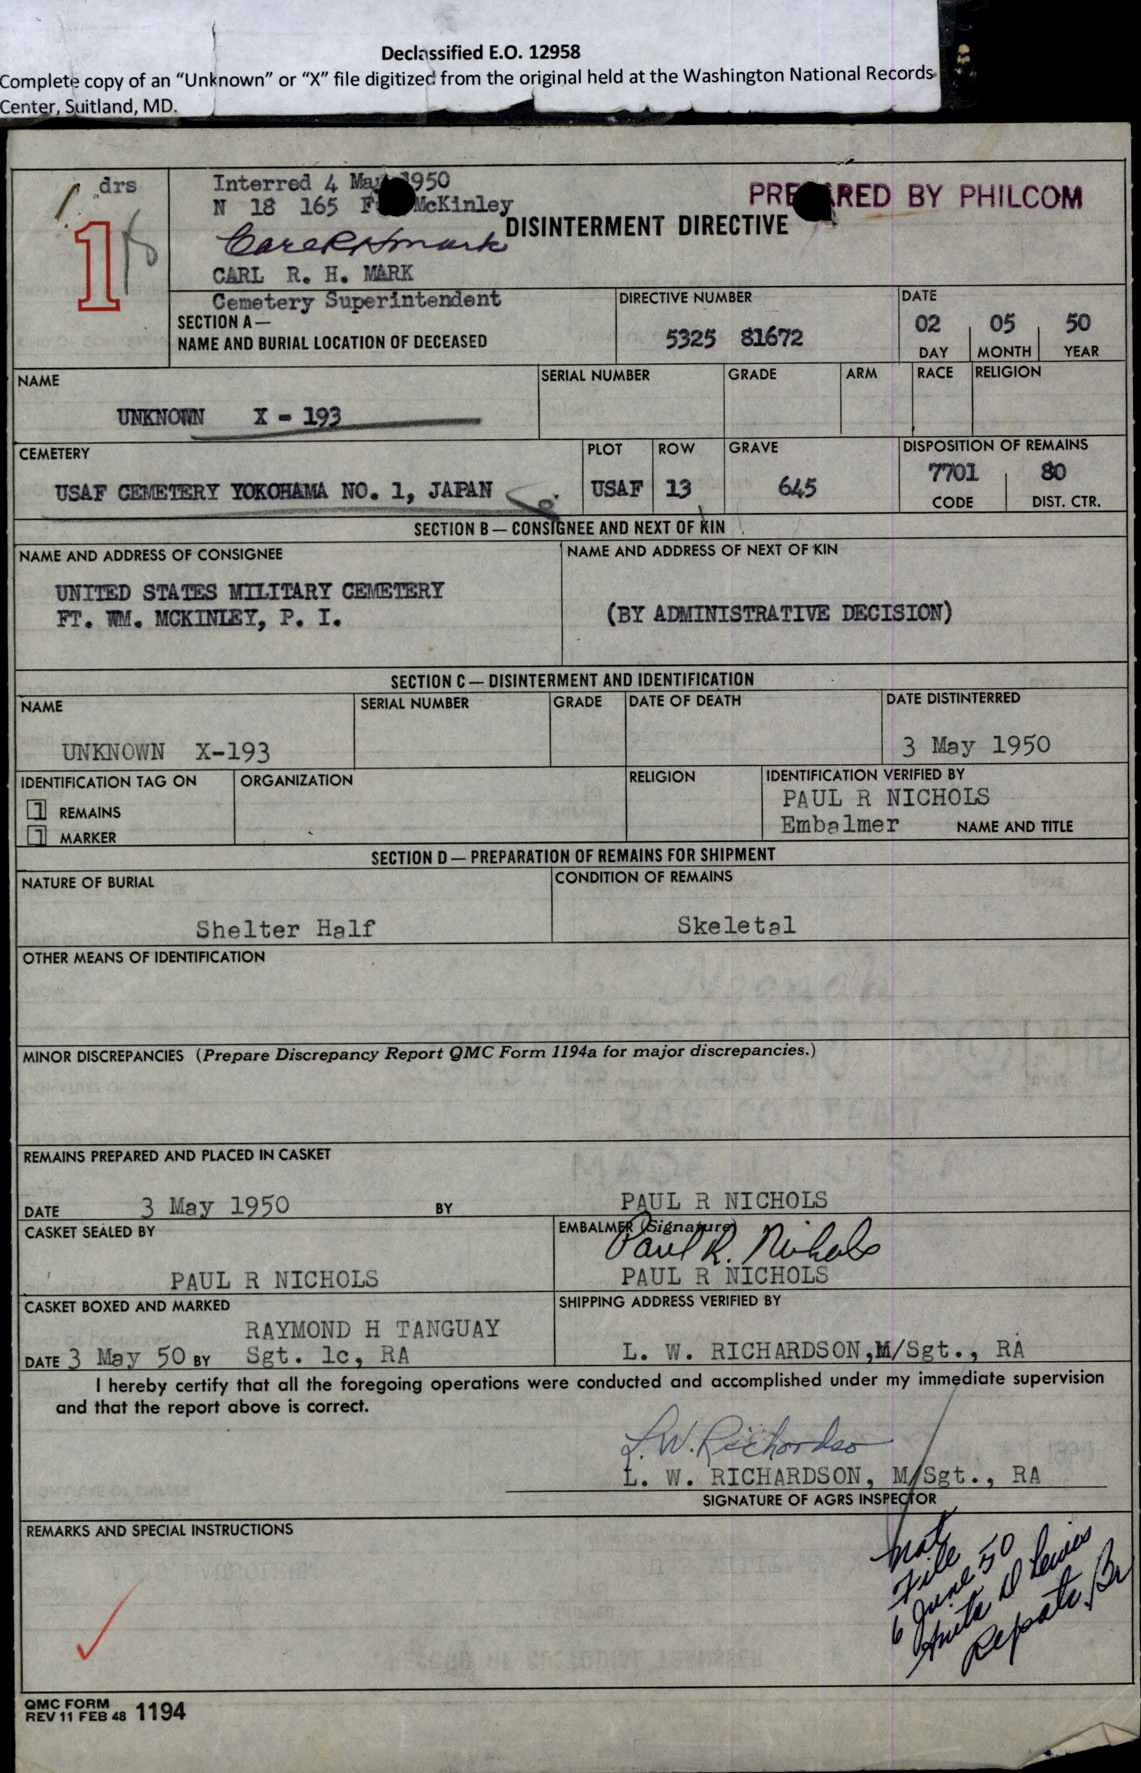 Declassified E.O. 12958
Complete copy of an “Unknown” or “X” file digitized from the original held at the Washington National Records
Center, Suitland, MD.
drs
1
Interred 4 May 1950
N 18 165 McKinley
PREPARED BY PHILCOM
DISINTERMENT DIRECTIVE
Carl R H Mark
CARL R. H. MARK
Cemetery Superintendent
SECTION A—
NAME AND BURIAL LOCATION OF DECEASED
DIRECTIVE NUMBER
5325 81672
DATE
02 05 50
DAY MONTH YEAR
NAME SERIAL NUMBER GRADE ARM RACE RELIGION
UNKNOWN X - 193
CEMETERY PLOT ROW GRAVE DISPOSITION OF REMAINS
USAF CEMETERY YOKOHAMA NO. 1, JAPAN USAF 13 645 7701 80
CODE DIST. CTR.
SECTION B — CONSIGNEE AND NEXT OF KIN
NAME AND ADDRESS OF CONSIGNEE NAME AND ADDRESS OF NEXT OF KIN
UNITED STATES MILITARY CEMETERY
FT. WM. MCKINLEY, P. I.
(BY ADMINISTRATIVE DECISION)
SECTION C — DISINTERMENT AND IDENTIFICATION
NAME SERIAL NUMBER GRADE DATE OF DEATH DATE DISTINTERRED
UNKNOWN X-193 3 May 1950
IDENTIFICATION TAG ON ORGANIZATION RELIGION IDENTIFICATION VERIFIED BY
1 REMAINS
1 MARKER
PAUL R NICHOLS
Embalmer NAME AND TITLE
SECTION D — PREPARATION OF REMAINS FOR SHIPMENT
NATURE OF BURIAL CONDITION OF REMAINS
Shelter Half Skeletal
OTHER MEANS OF IDENTIFICATION
MINOR DISCREPANCIES (Prepare Discrepancy Report QMC Form 1194a for major discrepancies.)
REMAINS PREPARED AND PLACED IN CASKET
DATE 3 May 1950 BY PAUL R NICHOLS
CASKET SEALED BY EMBALMER (Signature)
Paul R. Nichols
PAUL R NICHOLS PAUL R NICHOLS
CASKET BOXED AND MARKED SHIPPING ADDRESS VERIFIED BY
RAYMOND H TANGUAY
DATE 3 May 50 BY Sgt. 1c, RA L. W. RICHARDSON,M/Sgt., RA
I hereby certify that all the foregoing operations were conducted and accomplished under my immediate supervision
and that the report above is correct.
L. W. Richardson
L. W. RICHARDSON, M/Sgt., RA
SIGNATURE OF AGRS INSPECTOR
REMARKS AND SPECIAL INSTRUCTIONS
File
6 June 50
Anita D Lewis
Repatr. Br
QMC FORM
REV 11 FEB 48 1194